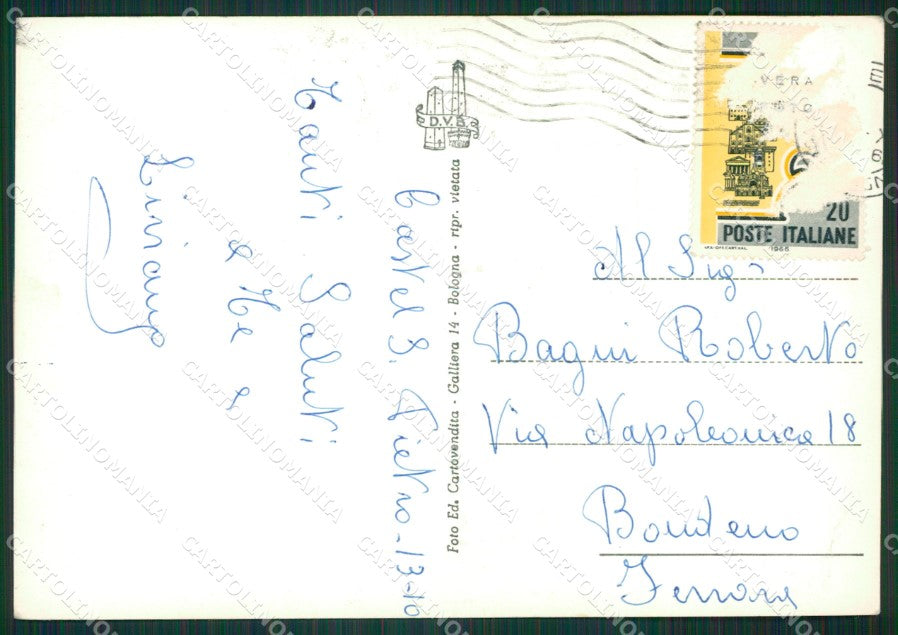 Castel S. Pietro - 13-10
Tanti Saluti
Liviana
D.V.B.
Foto Ed. Cartovendita - Galliera 14 - Bologna - ripr. vietata
VERA
20
POSTE ITALIANE
1966
Al Sig
Bagni Roberto
Via Napoleonica 18
Bondeno
Ferrara
CARTOLINOMANIA